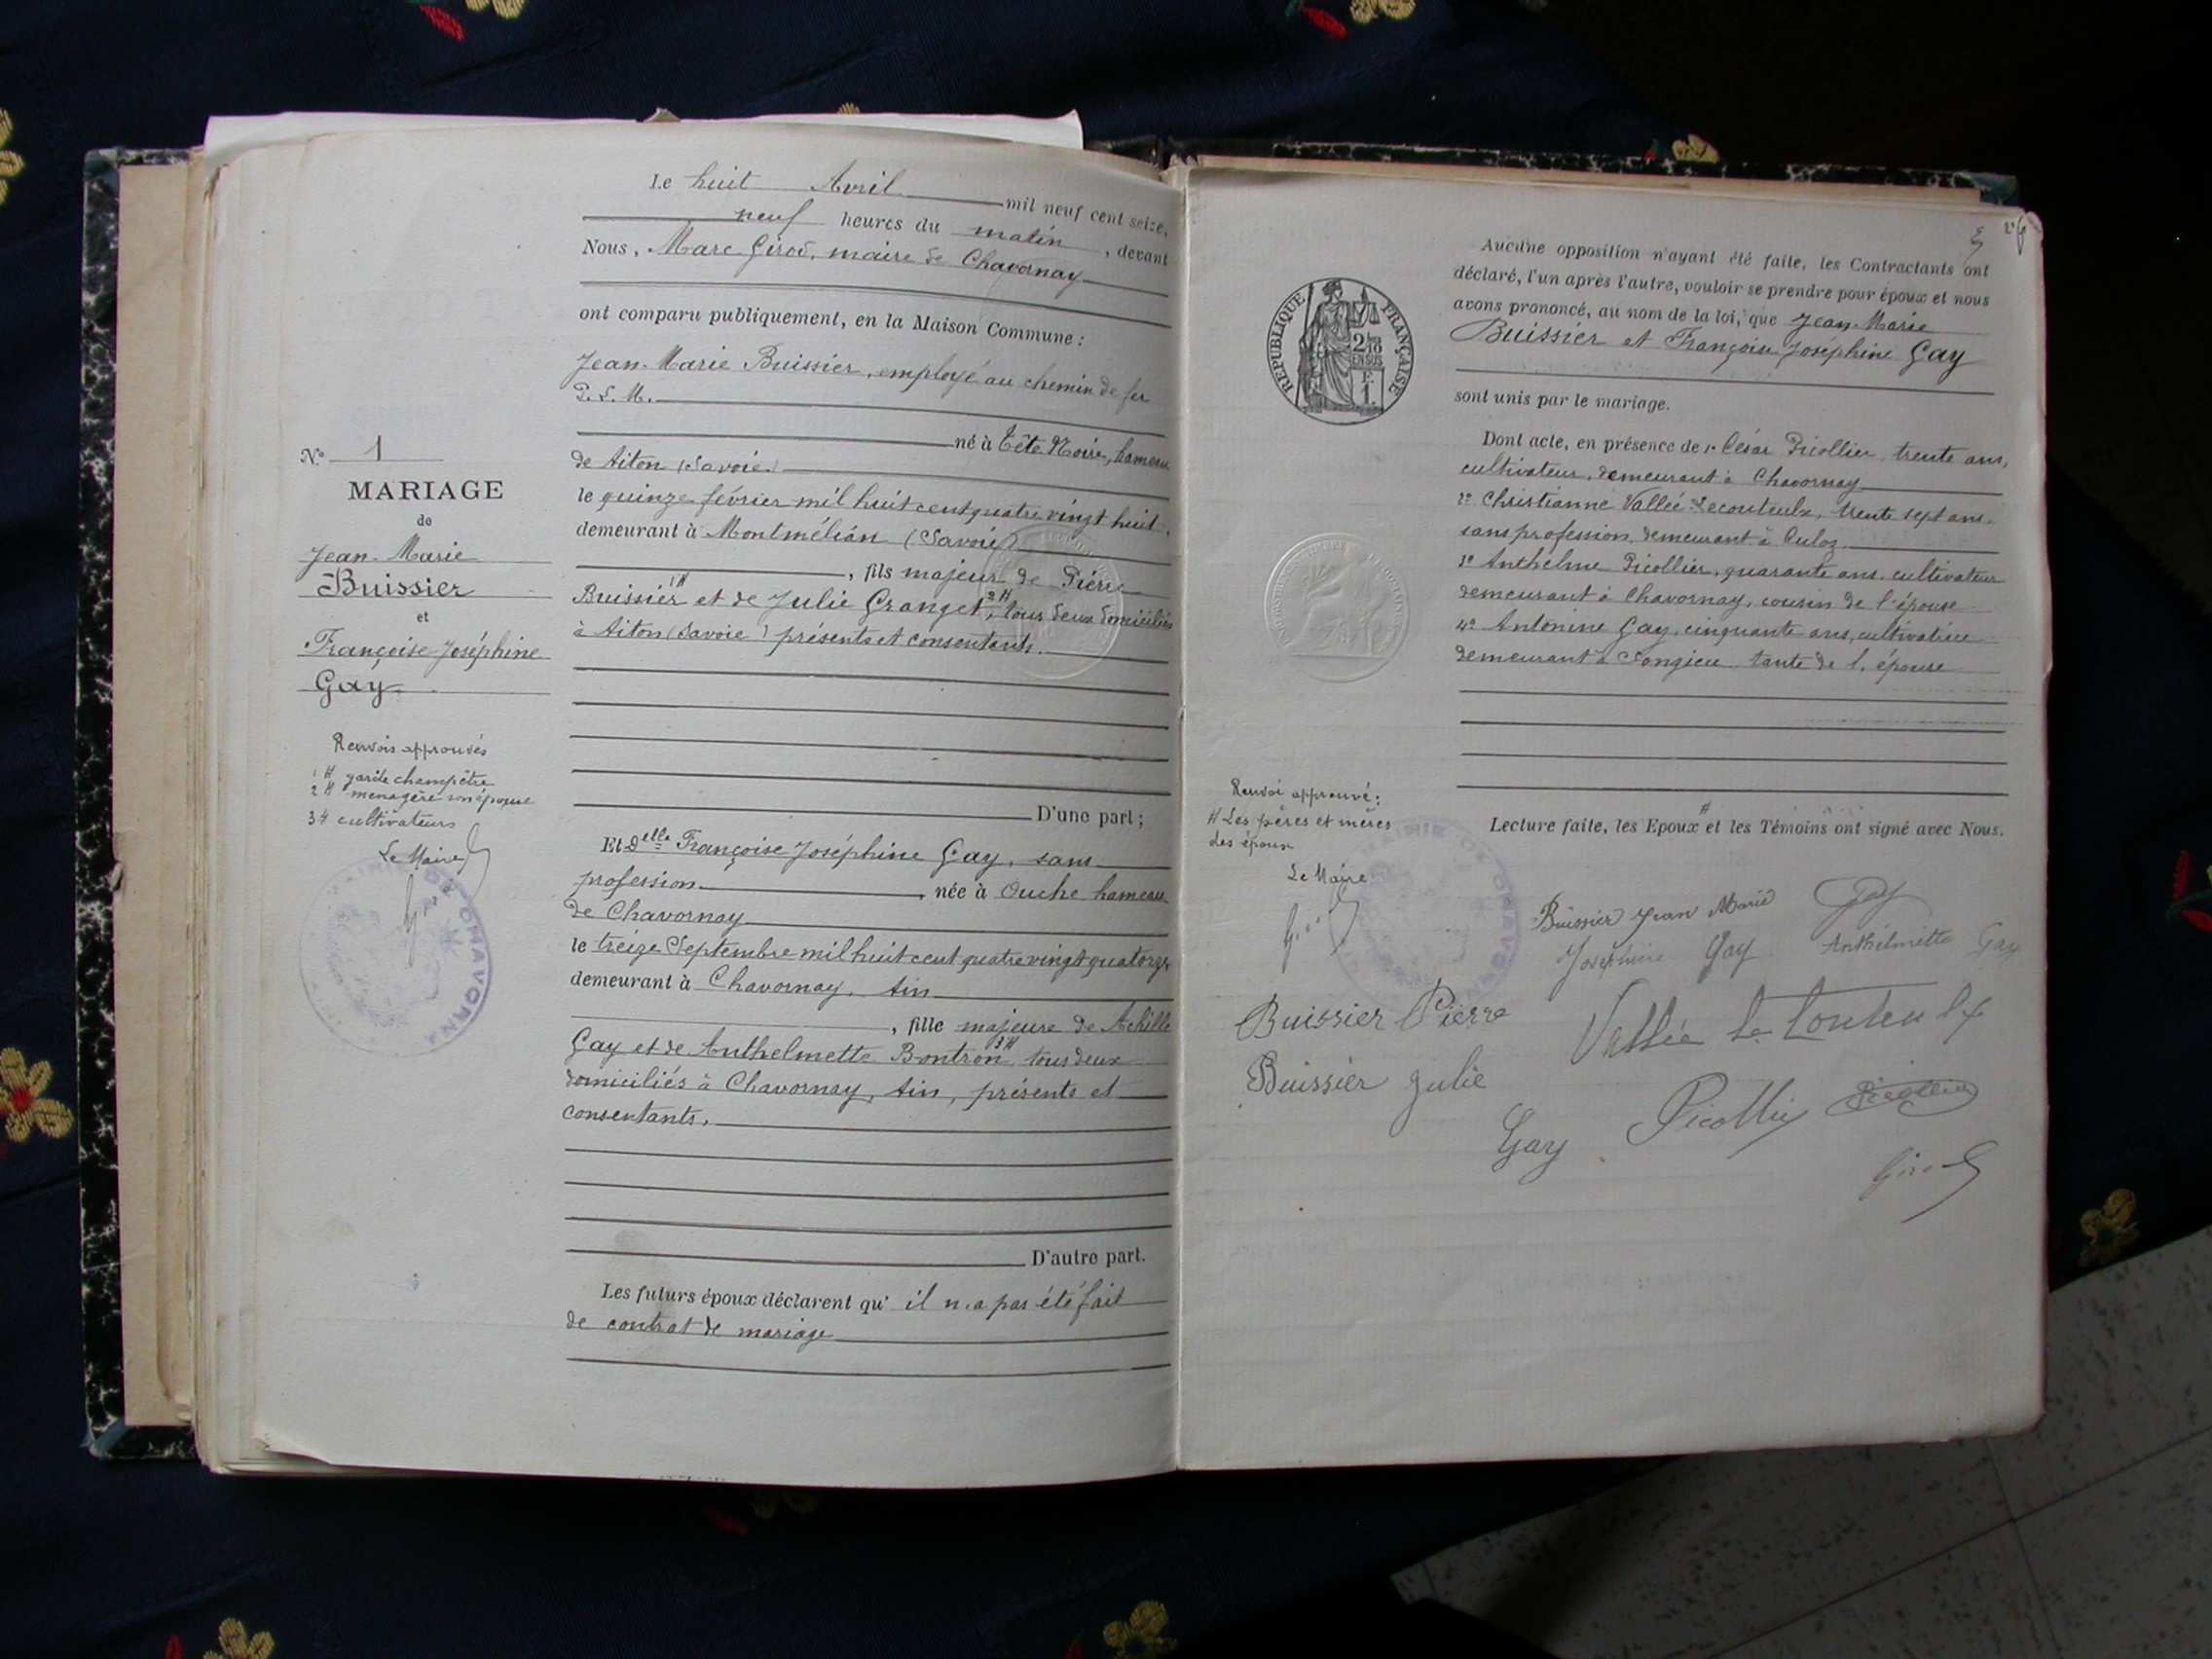 Le huit Avril mil neuf cent seize,
neuf heures du matin, devant
Nous, Marc Girod, maire de Chavornay
ont comparu publiquement, en la Maison Commune :
Jean-Marie Buissier, employé au chemin de fer
P. L. M.
né à Tête Noire, hameau
de Aiton (Savoie)
le quinze février mil huit cent quatre vingt huit,
demeurant à Montmélian (Savoie)
, fils majeur de Pierre
Buissier 1# et de Julie Granget, 2# tous deux domiciliés
à Aiton (Savoie) présents et consentants.
D'une part ;
Et Delle Françoise Joséphine Gay, sans
profession, née à Ouche hameau
de Chavornay
le treize Septembre mil huit cent quatre vingt quatorze
demeurant à Chavornay, Ain
, fille majeure de Achille
Gay et de Anthelmette Bontron 3# tous deux
domiciliés à Chavornay, Ain, présents et
consentants.
D'autre part.
Les futurs époux déclarent qu' il n'a pas été fait
de contrat de mariage
N° 1
MARIAGE
de
Jean-Marie
Buissier
et
Françoise-Joséphine
Gay
Renvois approuvés
1# garde champêtre
2# menagère son épouse
3# cultivateurs
Le Maire
CHAVORNAY
Aucune opposition n'ayant été faite, les Contractants ont
déclaré, l'un après l'autre, vouloir se prendre pour époux et nous
avons prononcé, au nom de la loi, que Jean-Marie
Buissier et Françoise Joséphine Gay
sont unis par le mariage.
Dont acte, en présence de 1° César Picollier, trente ans,
cultivateur, demeurant à Chavornay
2° Christianne Vallée Lecouteulx, trente sept ans,
sans profession, demeurant à Culoz
3° Anthelme Picollier, quarante ans, cultivateur
demeurant à Chavornay, cousin de l'épouse
4° Antonine Gay, cinquante ans, cultivatrice
demeurant à Songieu tante de l'épouse
Lecture faite, les Epoux # et les Témoins ont signé avec Nous.
REPUBLIQUE FRANÇAISE
2/10
EN SUS
1
F.
Renvoi approuvé :
# Les pères et mères
des époux
Le Maire
Buissier Jean Marie Gay
Joséphine Gay Anthelmette Gay
Buissier Pierre Vallée Le Couteulx
Buissier Julie
Gay Picollier Picollier
Girod